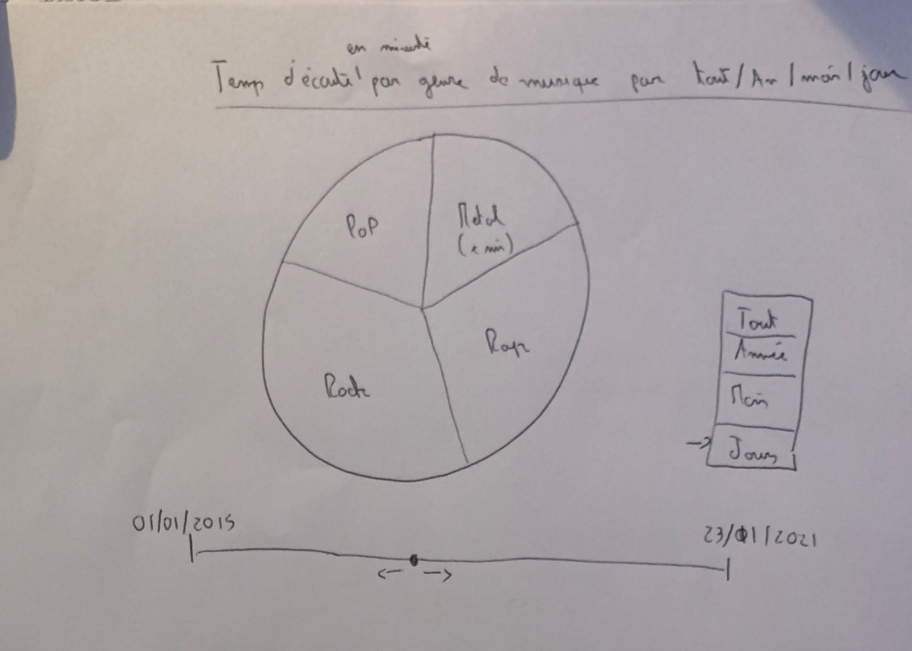 en minute
Temp d'écouté par genre de musique par tout/An/mois/jour
PoP
Metal
(x min)
Rap
Rock
Tout
Année
Mois
Jours
01/01/2015
23/01/2021